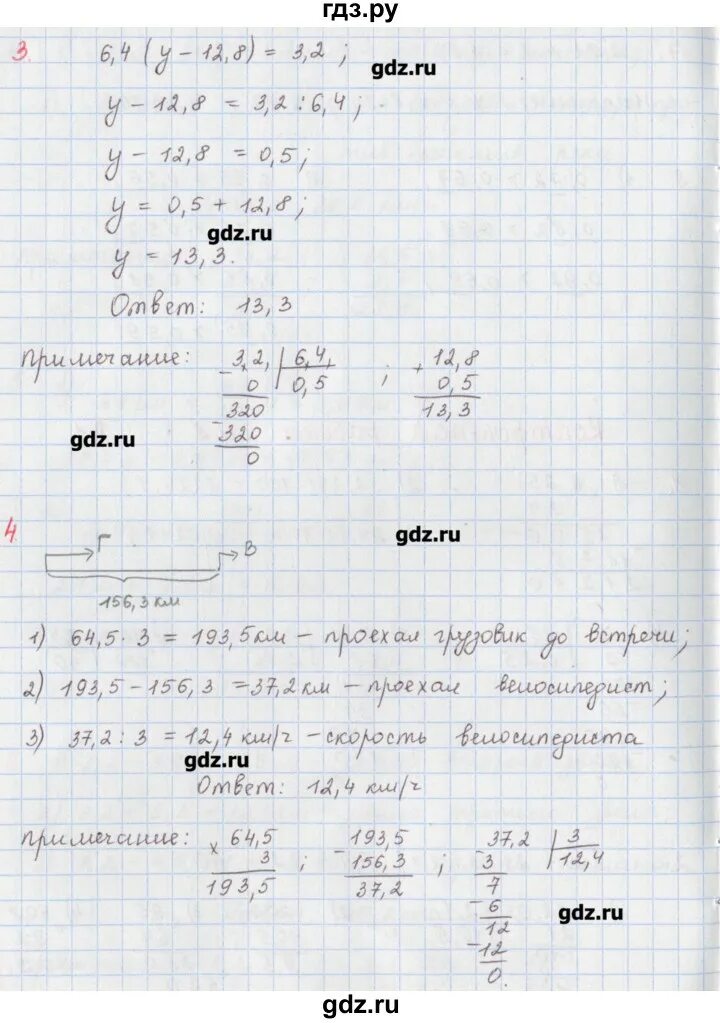 гдз.ру
3. 6,4 (у – 12,8) = 3,2 ;
gdz.ru
у – 12,8 = 3,2 : 6,4 ;
у – 12,8 = 0,5 ;
у = 0,5 + 12,8 ;
gdz.ru
у = 13,3.
Ответ: 13,3
Примечание: 3,2, | 6,4, ; + 12,8
– 0 | 0,5 0,5
320 13,3
– 320
gdz.ru
0
4.
gdz.ru
Г В
156,3 км
1) 64,5 · 3 = 193,5 км – проехал грузовик до встречи;
2) 193,5 – 156,3 = 37,2 км – проехал велосипедист;
3) 37,2 : 3 = 12,4 км/ч – скорость велосипедиста
gdz.ru
Ответ: 12,4 км/ч
Примечание: × 64,5 ; – 193,5 ; – 37,2 | 3
3 156,3 3 | 12,4
193,5 37,2 7
– 6
gdz.ru
12
– 12
0.
gdz.ru